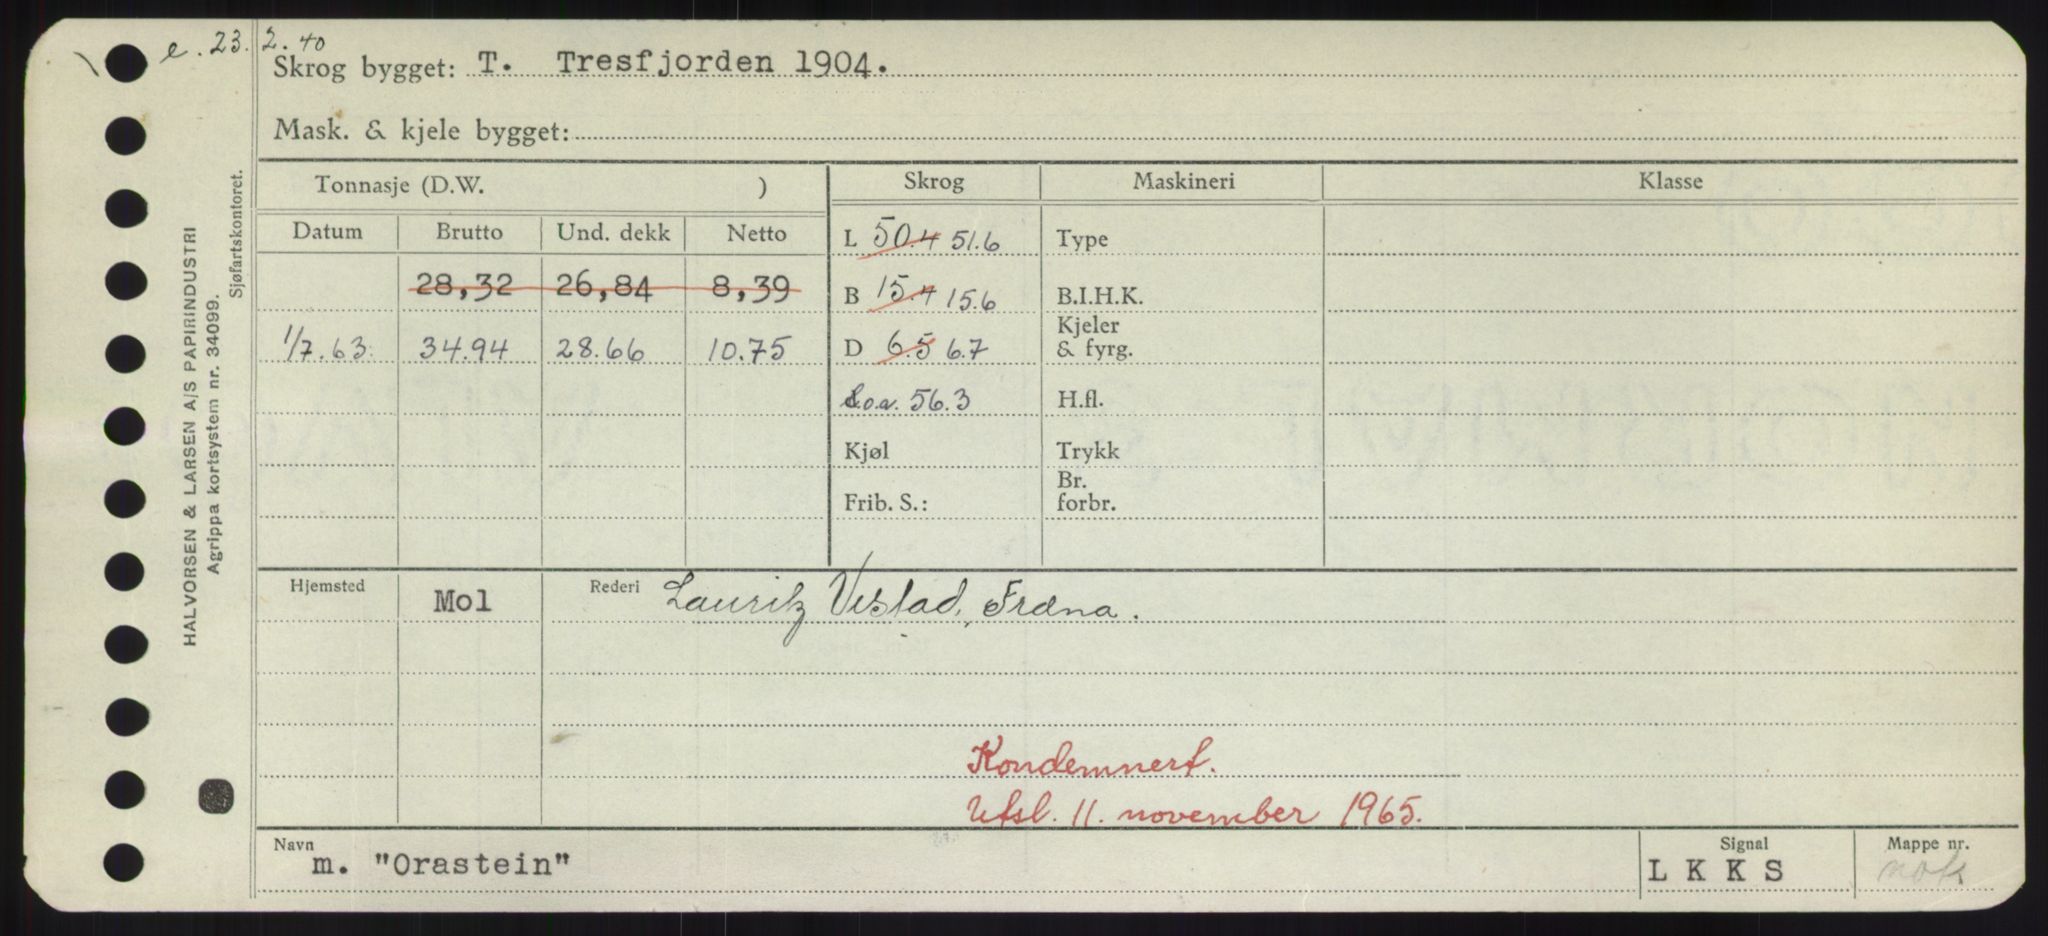 e. 23. 2. 40
Skrog bygget: T. Tresfjorden 1904.
Mask. & kjele bygget:
Tonnasje (D.W. )
Skrog Maskineri Klasse
Datum Brutto Und. dekk Netto
L 50.4 51.6 Type
28,32 26,84 8,39
B 15.4 15.6 B.I.H.K.
1/7.63 34.94 28.66 10.75
D 6.5 6.7 Kjeler & fyrg.
L.o.a. 56.3 H.fl.
Kjøl Trykk
Frib. S.: Br. forbr.
Hjemsted Mol Rederi Lauritz Vestad, Fræna.
Kondemnert.
Utsl. 11. november 1965.
Navn m. "Orastein"
Signal L K K S
Mappe nr. nok
HALVORSEN & LARSEN A/S PAPIRINDUSTRI
Agrippa kortsystem nr. 34099.
Sjøfartskontoret.